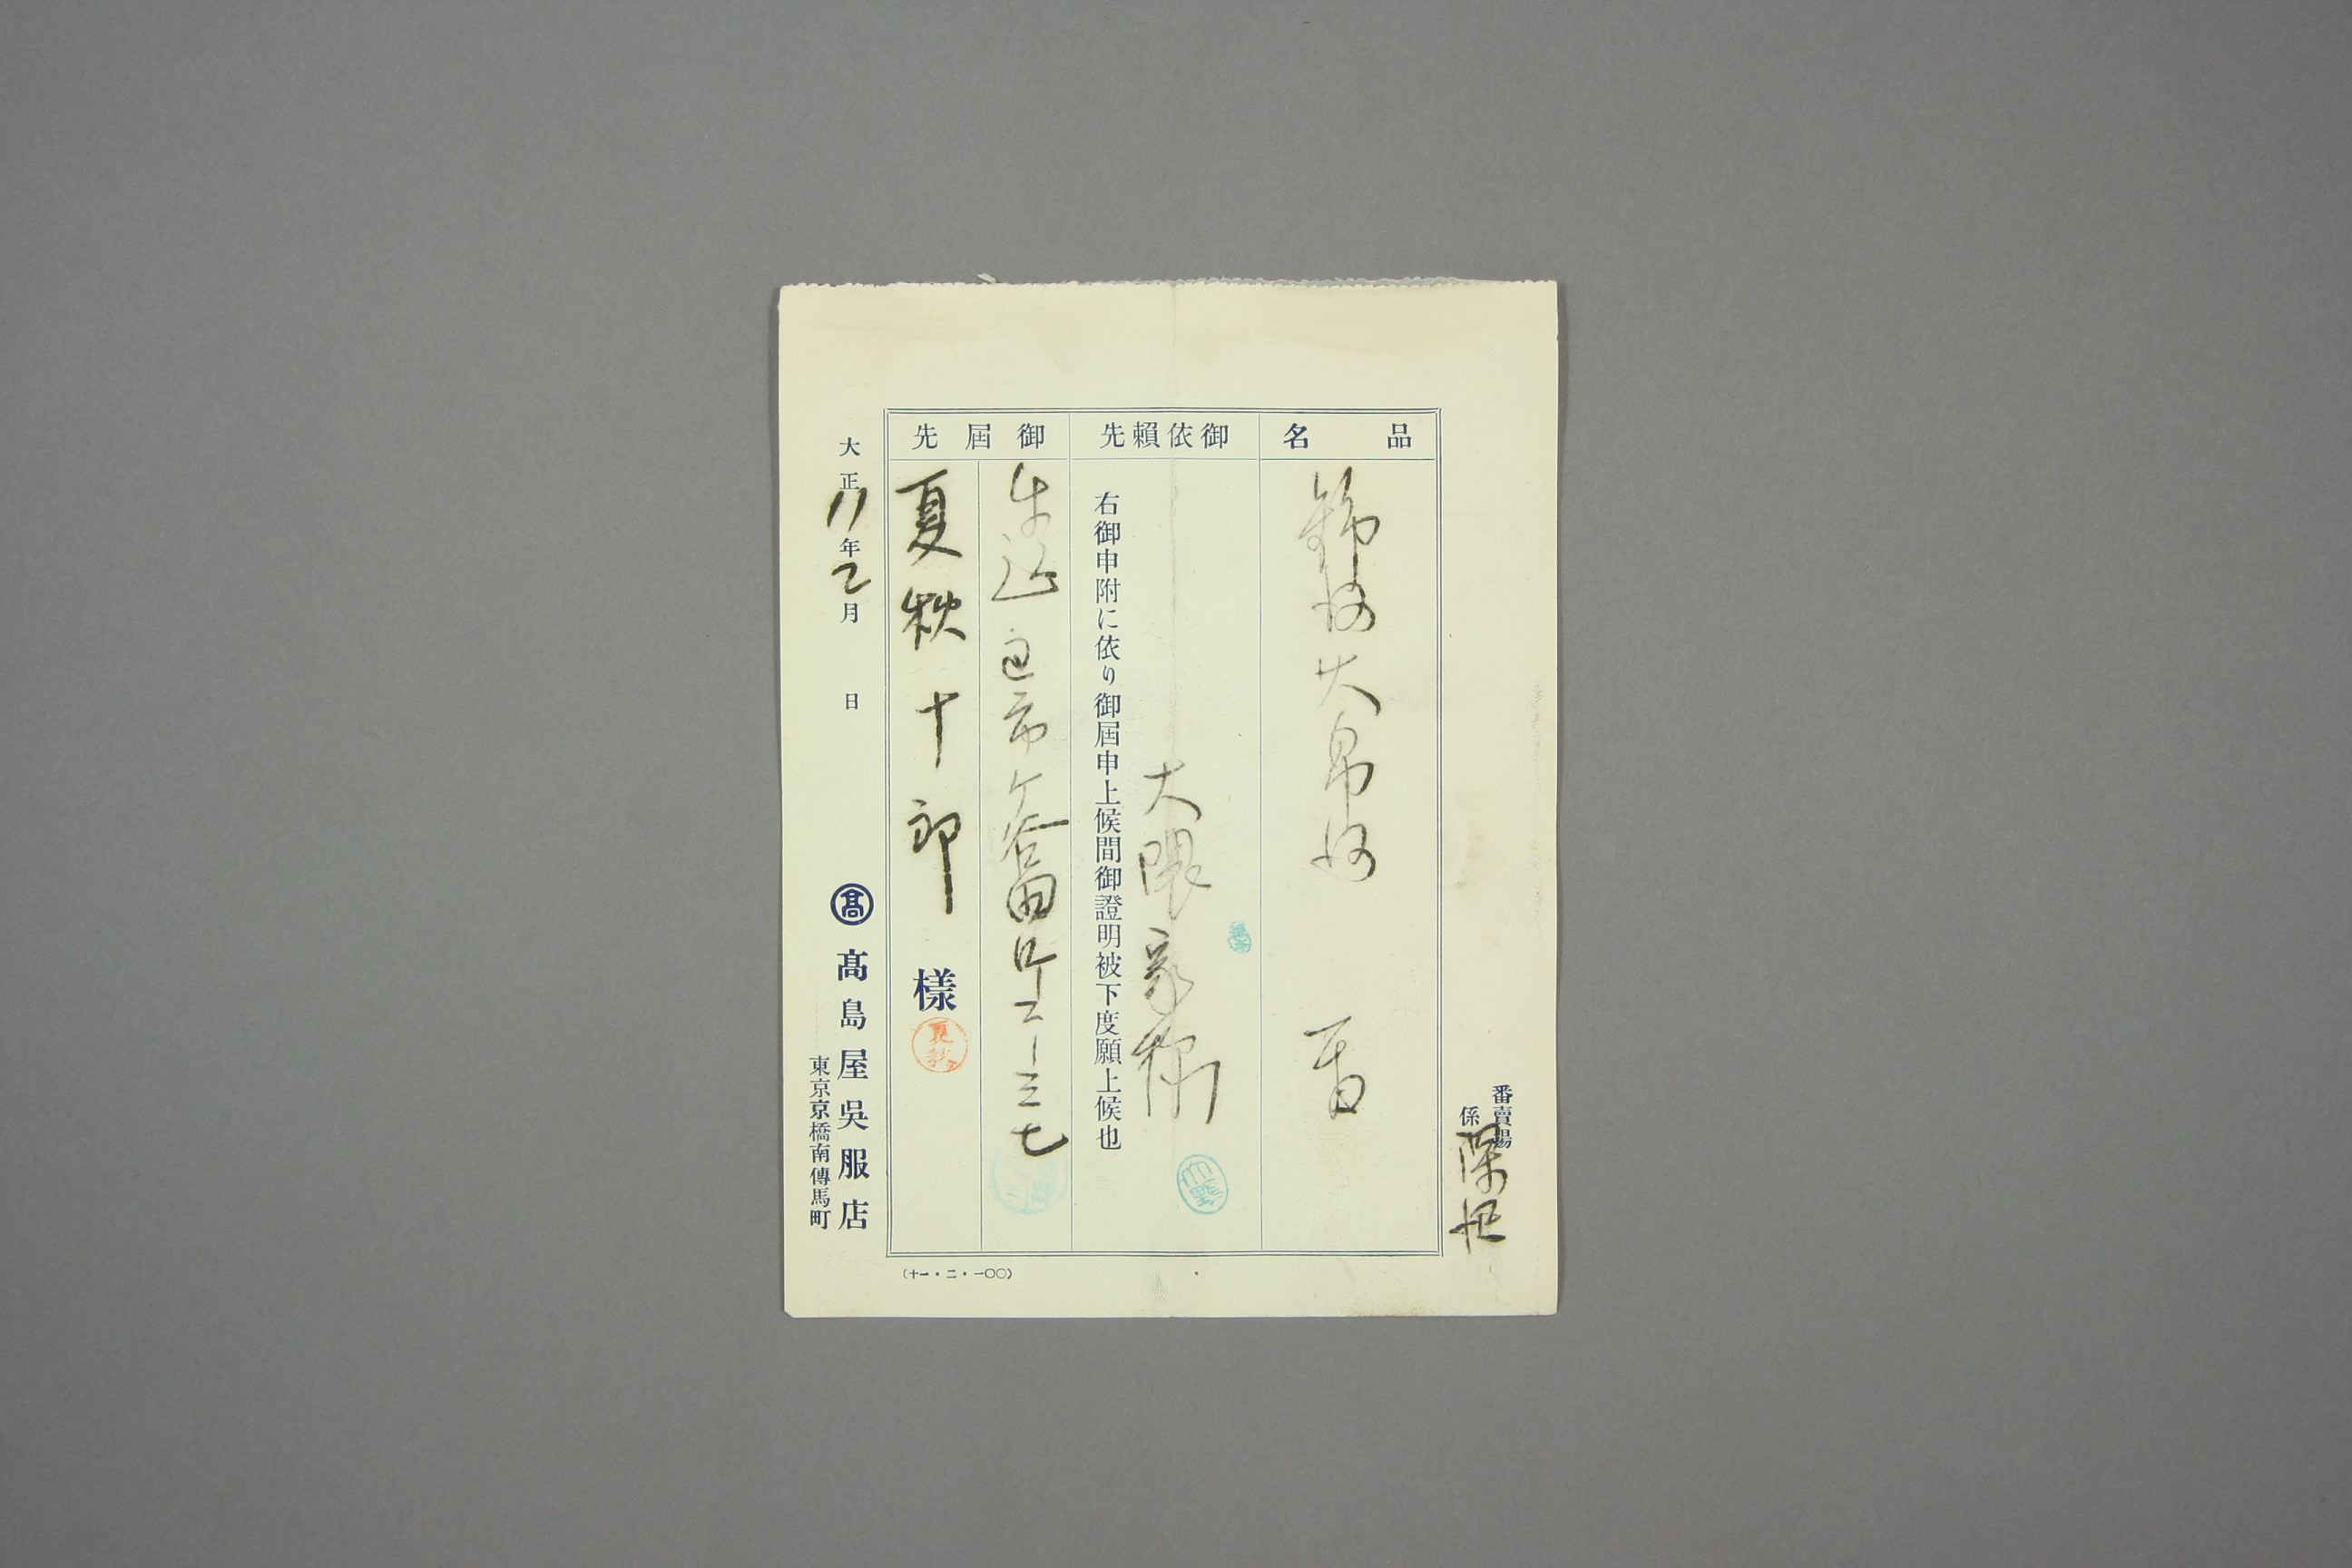 番賣場
係
品名
大
御依賴先
大隈家
右御申附に依り御屆申上候間御證明被下度願上候也
御屆先
牛込区市ケ谷富町二ー三七
夏秋十郎 樣
夏秋
大正11年2月 日
髙
髙島屋吳服店
東京京橋南傳馬町
(十一・二・一〇〇)